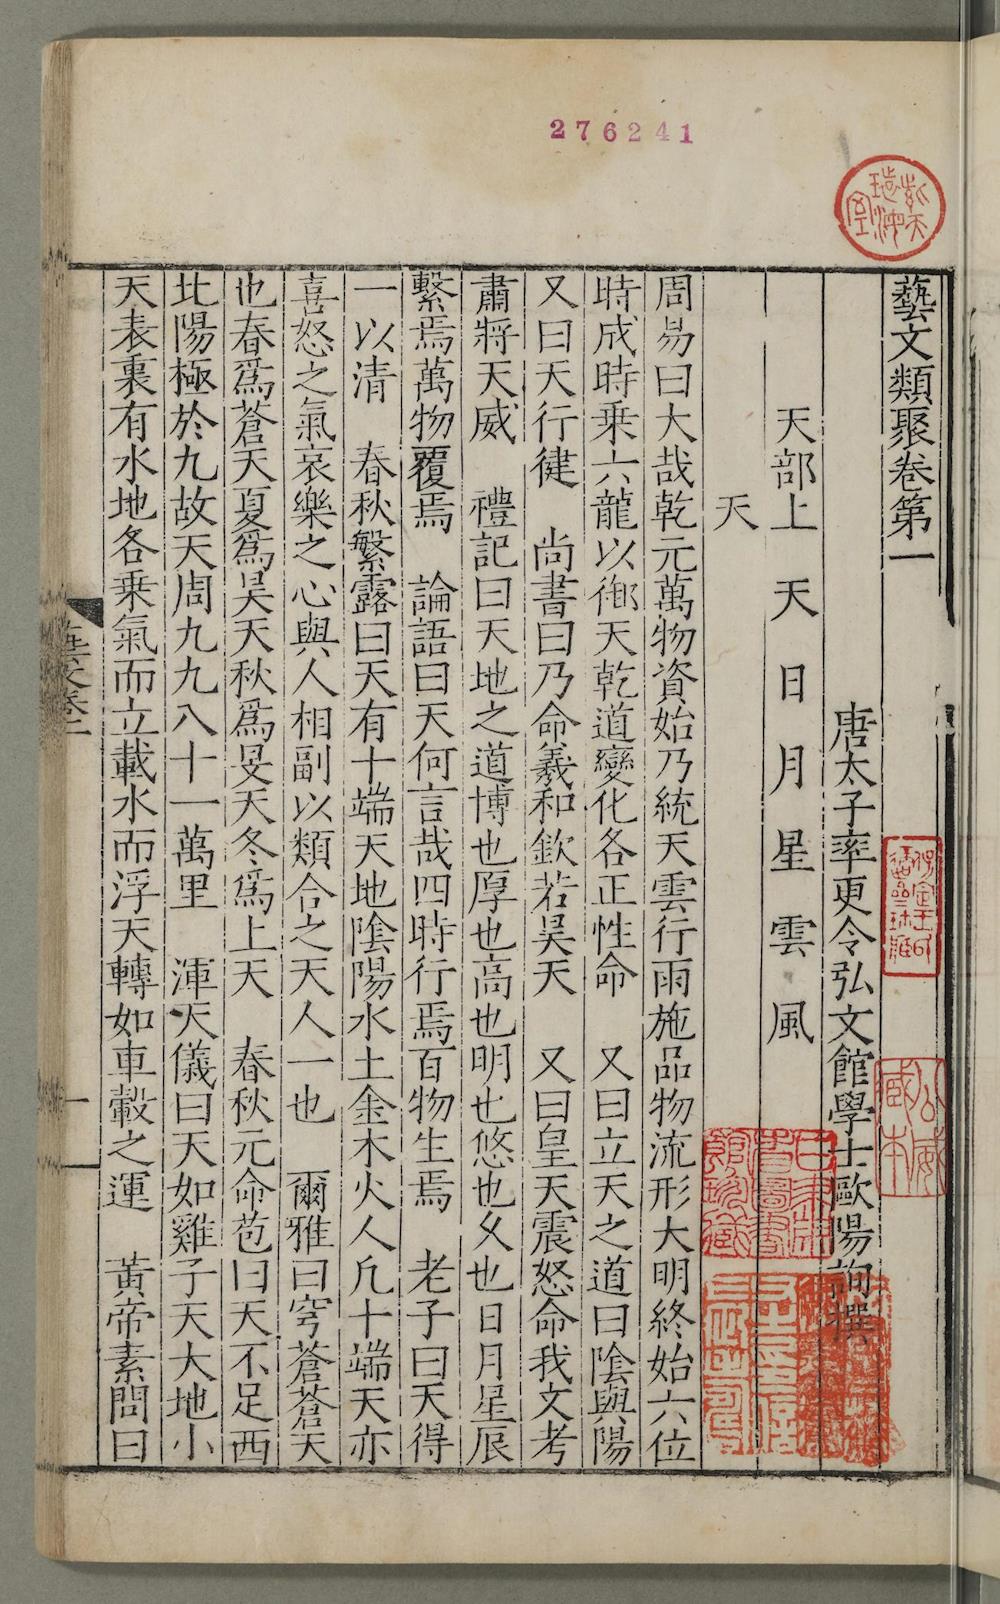 276241
藝文類聚卷第一
唐太子率更令弘文館學士歐陽詢撰
天部上 天 日 月 星 雲 風
天
周易曰大哉乾元萬物資始乃統天雲行雨施品物流形大明終始六位
時成時乗六龍以御天乾道變化各正性命 又曰立天之道曰陰與陽
又曰天行健 尚書曰乃命羲和欽若昊天 又曰皇天震怒命我文考
肅將天威 禮記曰天地之道博也厚也高也明也悠也久也日月星辰
繫焉萬物覆焉 論語曰天何言哉四時行焉百物生焉 老子曰天得
一以清 春秋繁露曰天有十端天地陰陽水土金木火人凡十端天亦
喜怒之氣哀樂之心與人相副以類合之天人一也 爾雅曰穹蒼蒼天
也春爲蒼天夏爲昊天秋爲旻天冬爲上天 春秋元命苞曰天不足西
北陽極於九故天周九九八十一萬里 渾天儀曰天如雞子天大地小
天表裏有水地各乗氣而立載水而浮天轉如車轂之運 黃帝素問曰
一